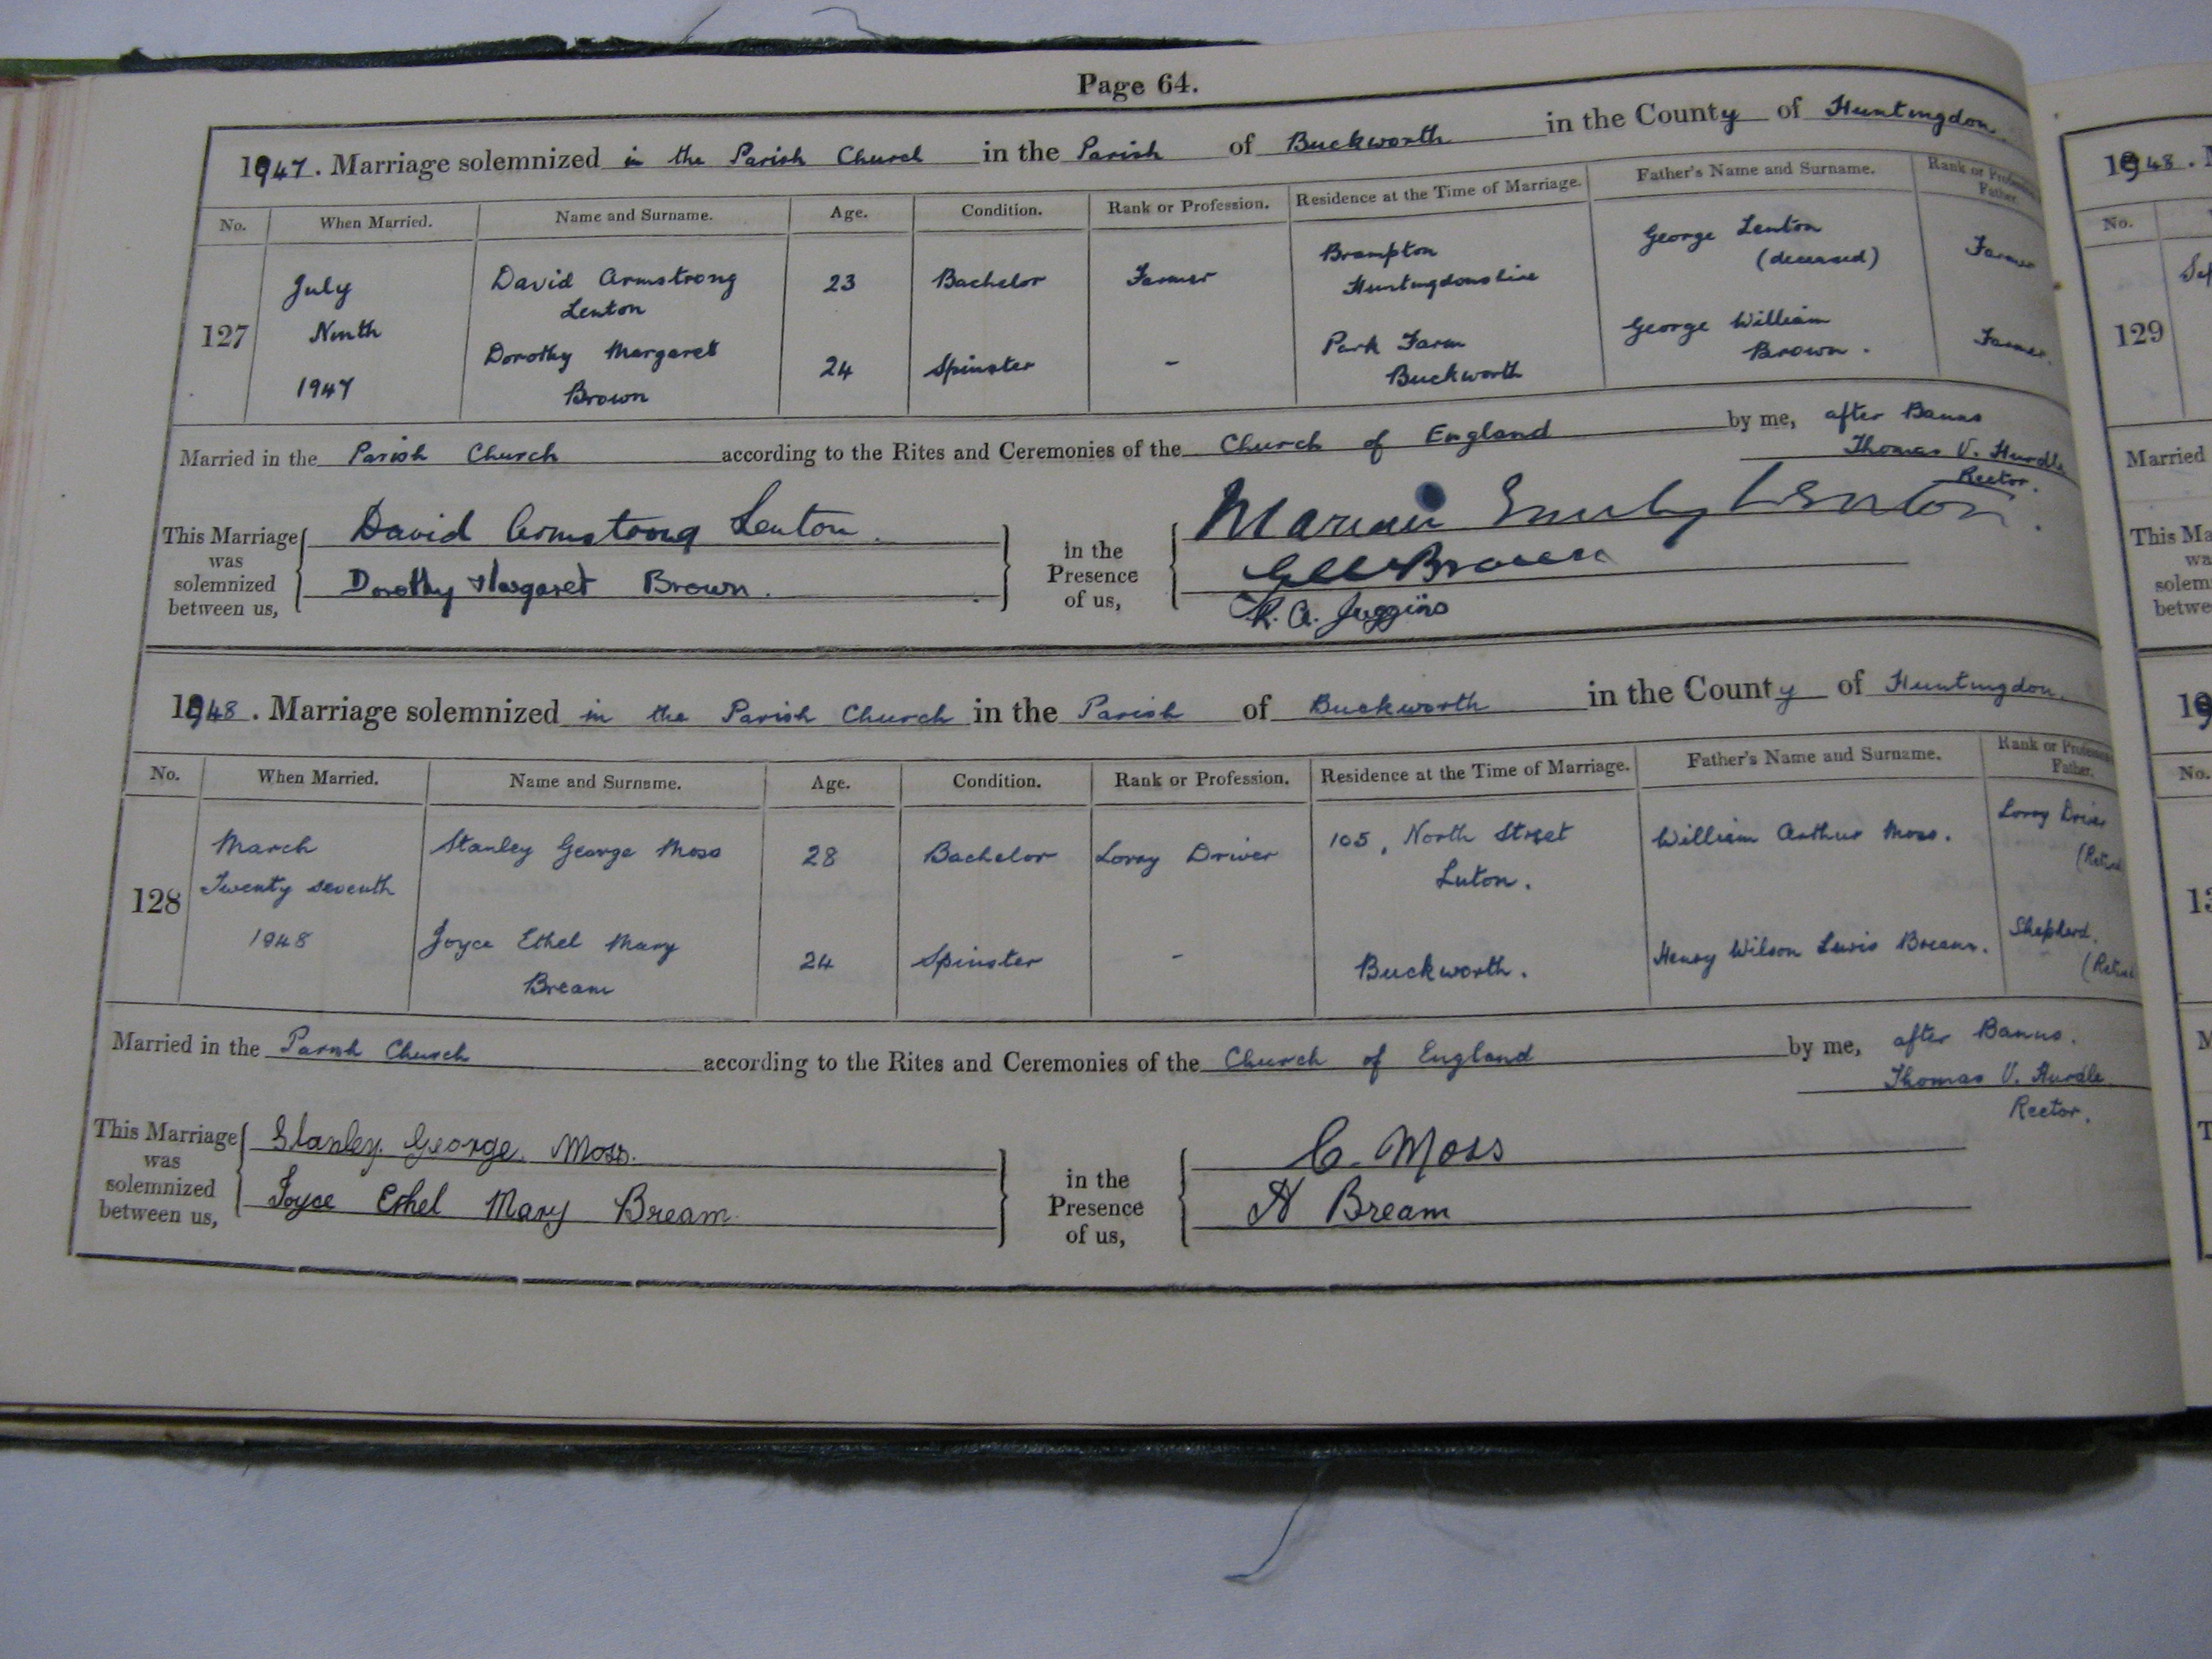 Page 64.
1947. Marriage solemnized in the Parish Church in the Parish of Buckworth in the County of Huntingdon.
No. When Married. Name and Surname. Age. Condition. Rank or Profession. Residence at the Time of Marriage. Father's Name and Surname. Rank or Profession Father.
127
July
Ninth
1947
David Armstrong
Lenton
23 Bachelor Farmer
Brampton
Huntingdonshire
George Lenton
(deceased)
Farmer
Dorothy Margaret
Brown
24 Spinster -
Park Farm
Buckworth
George William
Brown.
Farmer.
Married in the Parish Church according to the Rites and Ceremonies of the Church of England by me, after Banns
Thomas V. Hurdle
Rector.
This Marriage
was
solemnized
between us,
David Armstrong Lenton.
Dorothy Margaret Brown.
in the
Presence
of us,
Emily Lenton.
Brown
R. A. Juggins
1948. Marriage solemnized in the Parish Church in the Parish of Buckworth in the County of Huntingdon.
No. When Married. Name and Surname. Age. Condition. Rank or Profession. Residence at the Time of Marriage. Father's Name and Surname. Rank or Profession Father.
128
March
Twenty seventh
1948
Stanley George Moss
28 Bachelor Lorry Driver
105, North Street
Luton.
William Arthur Moss.
Lorry Driver
(Retired
Joyce Ethel Mary
Bream
24 Spinster -
Buckworth.
Henry Wilson Lewis Bream.
Shepherd.
(Retired
Married in the Parish Church according to the Rites and Ceremonies of the Church of England by me, after Banns.
Thomas V. Hurdle
Rector.
This Marriage
was
solemnized
between us,
Stanley. George. Moss.
Joyce Ethel Mary Bream.
in the
Presence
of us,
C. Moss
H Bream
1948.
No.
129
Married
This Ma
was
solem
betwe
19
No.
13
M
T